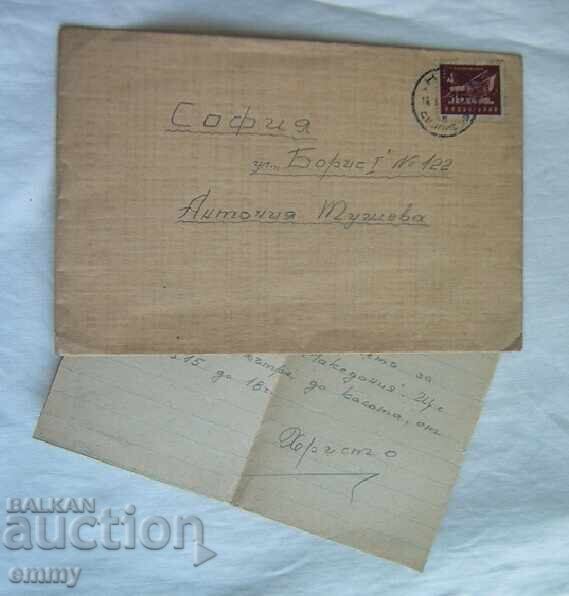 4
София
ул. „Борис I“ № 122
Антония
за
Македония".
15 до 18 ч.
до касата, от
Христо
BALKAN
auction
emmy